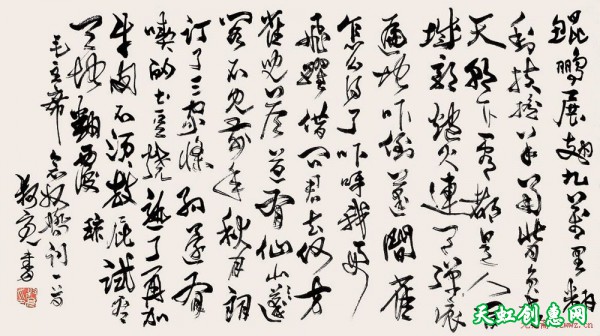 鯤鹏展翅九萬里翻
動扶摇羊角背负青
天朝下看都是人间
城郭炮火連天彈痕
遍地吓倒蓬間雀
怎么得了吓呀我要
飛躍借问君去何方
雀兒答道有仙山蓬
阁不见前年秋月朗
订了三家條约还有
喫的土豆烧熟了再加
牛肉不须放屁试看
天地翻覆 琼
毛主席念奴嬌词一首
書
天虹创意网